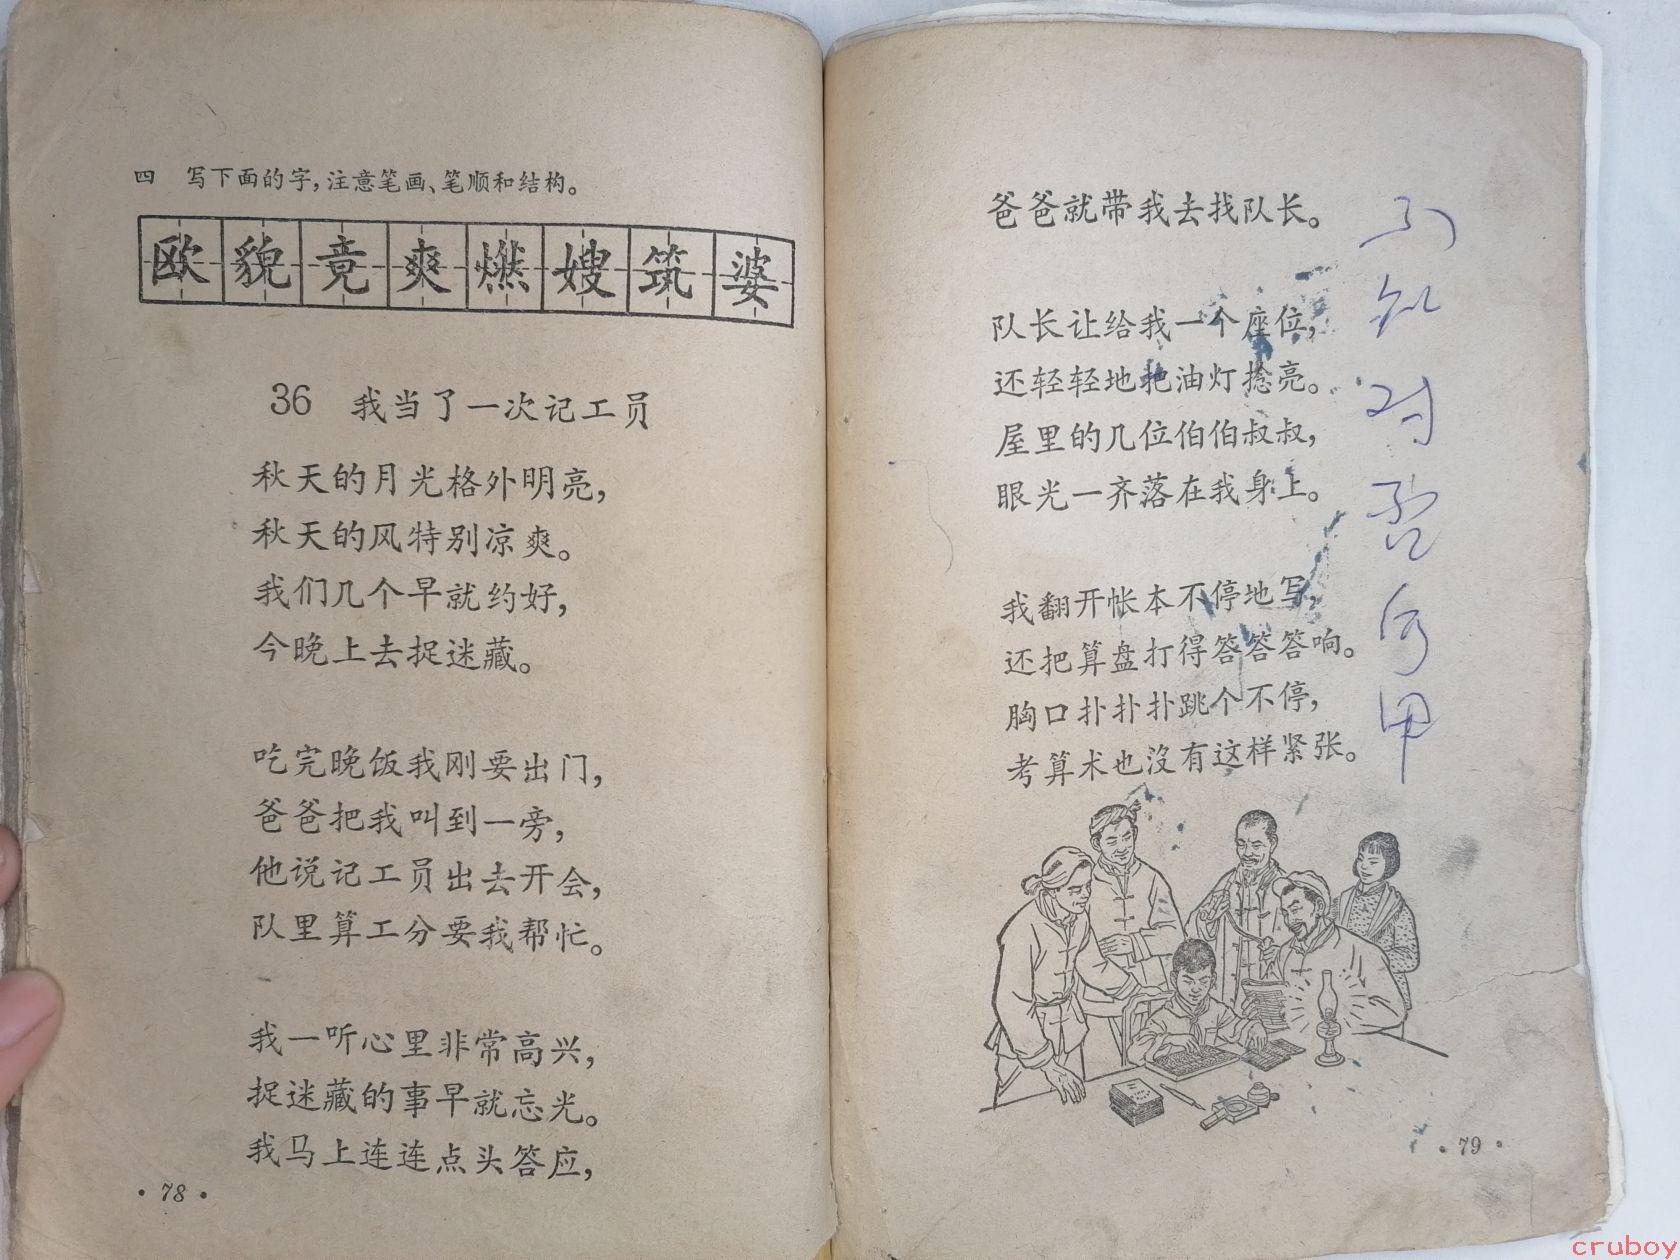 四 写下面的字,注意笔画、笔顺和结构。
欧貌竟爽燃嫂筑婆
36 我当了一次记工员
秋天的月光格外明亮,
秋天的风特别凉爽。
我们几个早就约好,
今晚上去捉迷藏。
吃完晚饭我刚要出门,
爸爸把我叫到一旁,
他说记工员出去开会,
队里算工分要我帮忙。
我一听心里非常高兴,
捉迷藏的事早就忘光。
我马上连连点头答应,
·78·
爸爸就带我去找队长。
队长让给我一个座位,
还轻轻地把油灯捻亮。
屋里的几位伯伯叔叔,
眼光一齐落在我身上。
我翻开帐本不停地写,
还把算盘打得答答答响。
胸口扑扑扑跳个不停,
考算术也没有这样紧张。
·79·
cruboy